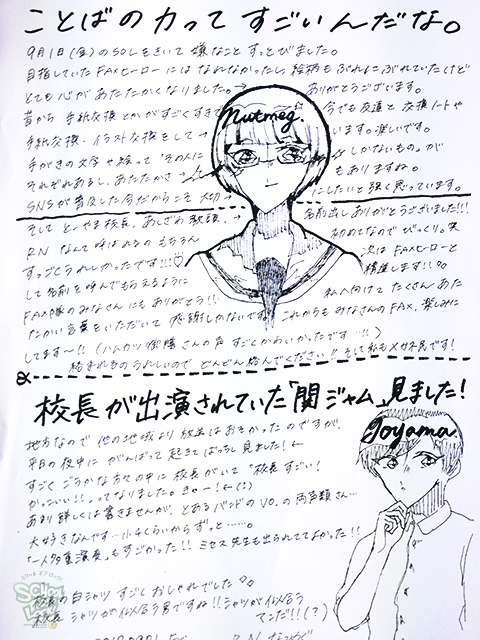 ことばの力ってすごいんだな。
9月1日(金)のSOLをきいて嫌なことすっとびました。
目指していたFAXヒーローにはなれなかったし、絵柄もぶれぶれにぶれていたけど
とても心があたたかくなりました。→ ありがとうございます。
昔から手紙交換とかがすごくすきで 今でも友達と交換ノートや
手紙交換、イラスト交換をして→ います。楽しいです。
手がきの文字や絵って"その人に しかないもの"が
それぞれあるし、あたたかさ もありますね。
SNSが普及した今だからこそ大切→ にしたいと強く思っています。
Nutmeg.
そしてとーやま校長、あしざわ教頭、→ 名前出しありがとうございました!!!
RNなんて呼ばれるのもちろん 初めてなのでびっくり。笑
すっごくうれしかったです!!!♡ 次はFAXヒーローと
して名前を呼んでもらえるように 精進します!!
FAX隊のみなさんにもありがとう!! 私へ向けてたくさんあた
たかい言葉をいただいて(感謝しかないです) これからもみなさんのFAX、楽しみに
してます〜!!(ハムカツ 先輩さんの声すごくかわいかったです…!!)
絡まれるのうれしいのでどんどん絡んでください!!そして私もメガネ民です!
校長が出演されていた「関ジャム」見ました!
地方なので他の地域より放送はおそかったのですが、
平日の夜中にがんばって起きてばっちし見ました!←
すごくごうかな方々の中に校長がいて"校長すごい!
かっこいい!!"ってなりました。きゃー!←(:)
あまり詳しくは書きませんが、とあるバンドのVO.の両声類さん…
大好きなんです…小4くらいからずっと……。
"一人多重演奏"もすごかった!!ミセス先生も出られててよかった!!
校長の白シャツすごくおしゃれでした
校長シャツが似合う男ですね!!シャツが似合う
てこだ!!(?)
Toyama.
SCHOOL OF LOCK!
RN なつめぐ